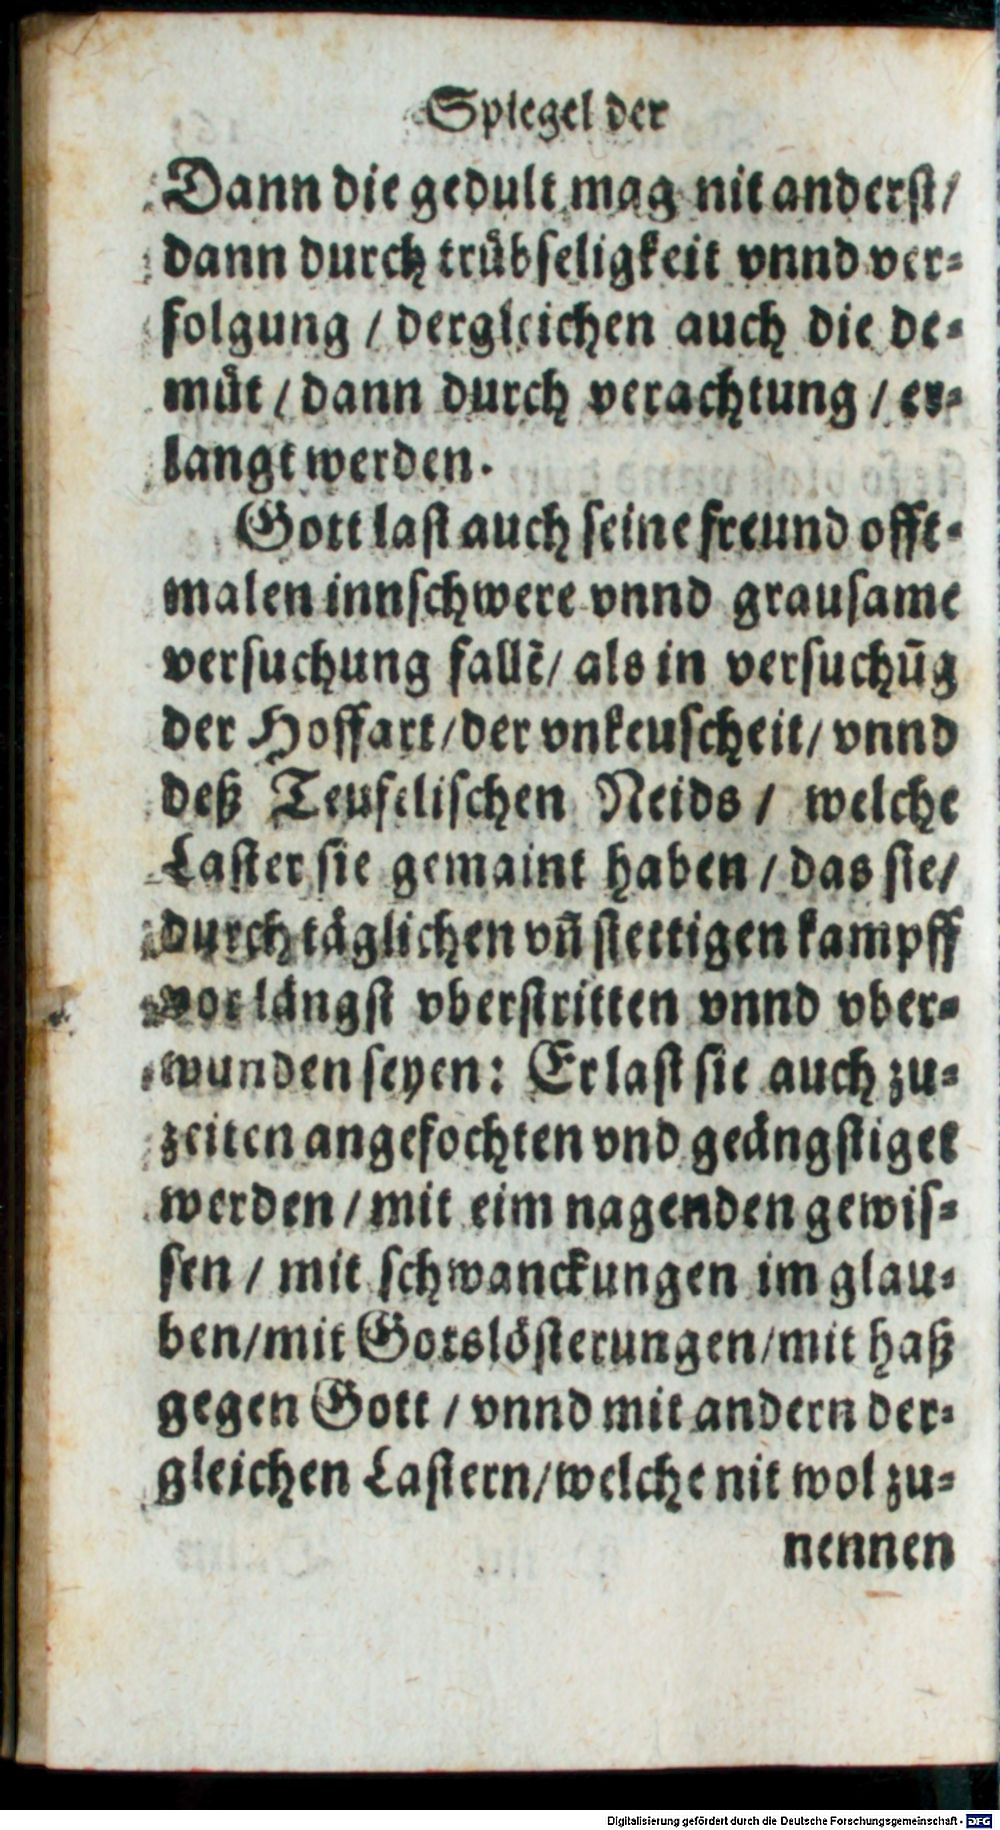 Spiegel der
Dann die gedult mag nit anderst/
dann durch trübseligkeit vnnd ver-
folgung / dergleichen auch die de-
müt / dann durch verachtung / er-
langt werden.
Gott last auch seine freund offt-
malen inn schwere vnnd grausame
versuchung fallẽ/ als in versuchũg
der Hoffart/der vnkeuscheit/ vnnd
deß Teufelischen Neids / welche
Laster sie gemaint haben / das sie/
durch täglichen vñ stettigen kampff
vorlängst vberstritten vnnd vber-
wunden seyen: Er last sie auch zu-
zeiten angefochten vnd geängstiget
werden / mit eim nagenden gewis-
sen / mit schwanckungen im glau-
ben/mit Gotslösterungen/mit haß
gegen Gott / vnnd mit andern der-
gleichen Lastern/welche nit wol zu-
nennen
Digitalisierung gefördert durch die Deutsche Forschungsgemeinschaft - DFG